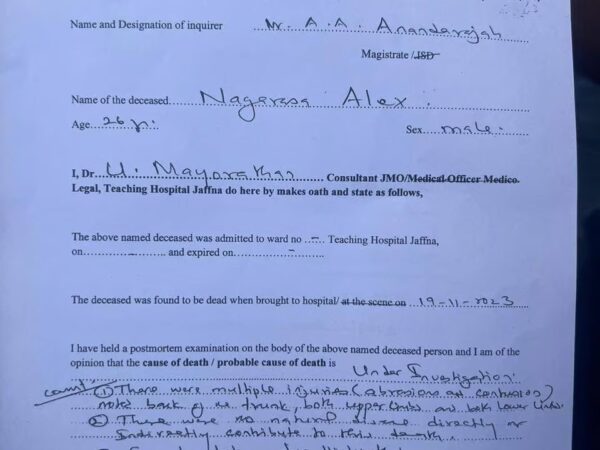 Name and Designation of inquirer Mr. A. A. Anandarajah
Magistrate / ISD
Name of the deceased Nagarasa Alex.
Age 26 yr. Sex male.
I, Dr. U. Mayorathan Consultant JMO/Medical Officer Medico
Legal, Teaching Hospital Jaffna do here by makes oath and state as follows,
The above named deceased was admitted to ward no – Teaching Hospital Jaffna,
on and expired on –
The deceased was found to be dead when brought to hospital/ at the scene on 19-11-2023
I have held a postmortem examination on the body of the above named deceased person and I am of the
opinion that the cause of death / probable cause of death is Under Investigation.
① There were multiple injuries (abrasions and contusions)
noted back of the trunk, both upper limbs and both lower limbs.
② There were no natural disease directly or
Indirectly contribute to this death.